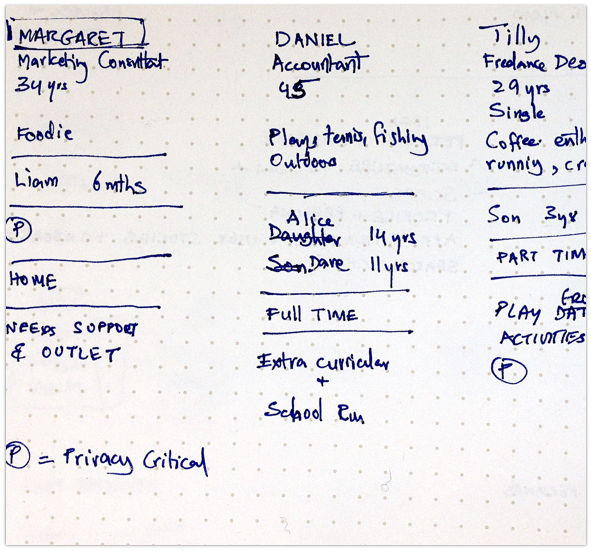 MARGARET
Marketing Consultant
34 yrs
Foodie
Liam 6 mths
P
HOME
NEEDS SUPPORT
& OUTLET
P = Privacy Critical
DANIEL
Accountant
45
Plays tennis, fishing
Outdoos
Alice
Daughter 14 yrs
Son Dave 11 yrs
FULL TIME
Extra curricular
+
School Run
Tilly
Freelance Des
29 yrs
Single
Coffee enth
runniy, cr
Son 3 yrs
PART TIM
PLAY DAT
ACTIVITIES
P